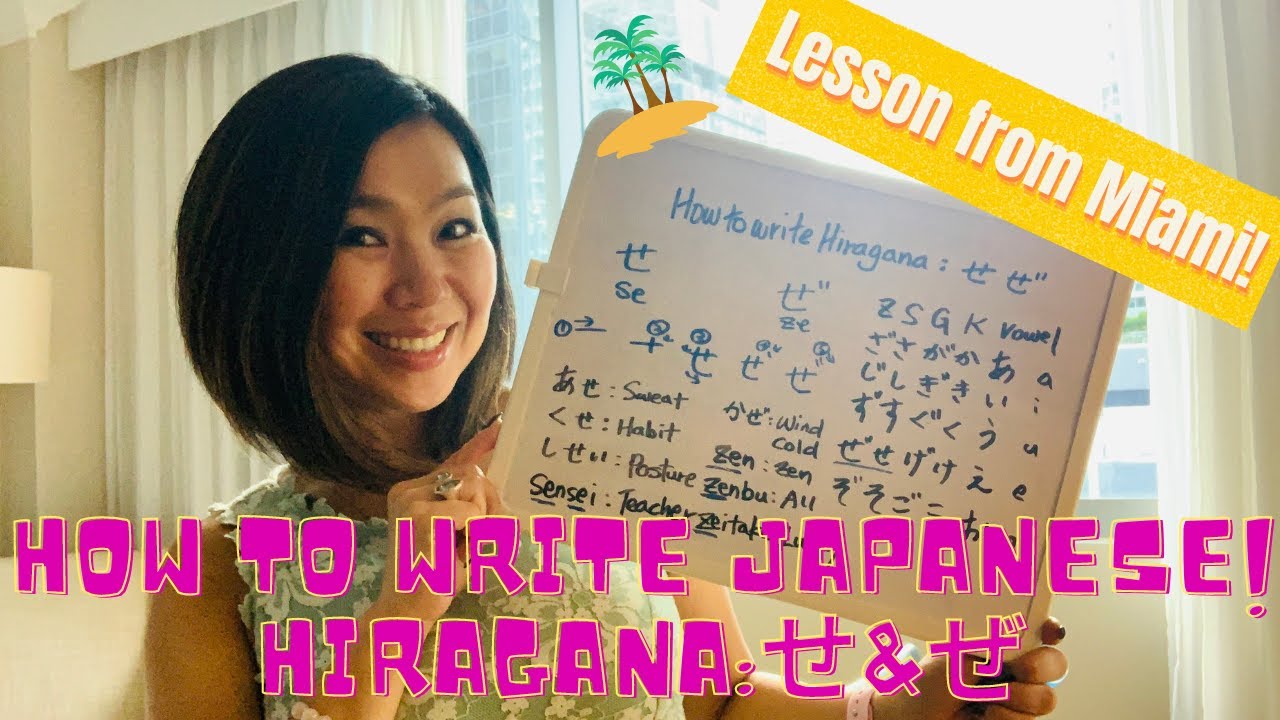 Lesson from Miami!
How to write Hiragana : せ ぜ
せ
se
ぜ
ze
① ② ③ せ
せ ① ぜ ②
あせ : Sweat
くせ : Habit
しせい : Posture
sensei : Teacher
かぜ : Wind
cold
zen : zen
zenbu : All
Z S G K Vowel
ざ さ が か あ a
じ し ぎ き い i
ず す ぐ く う u
ぜ せ げ け え e
ぞ そ ご こ お
HOW TO WRITE JAPANESE!
HIRAGANA:せ&ぜ